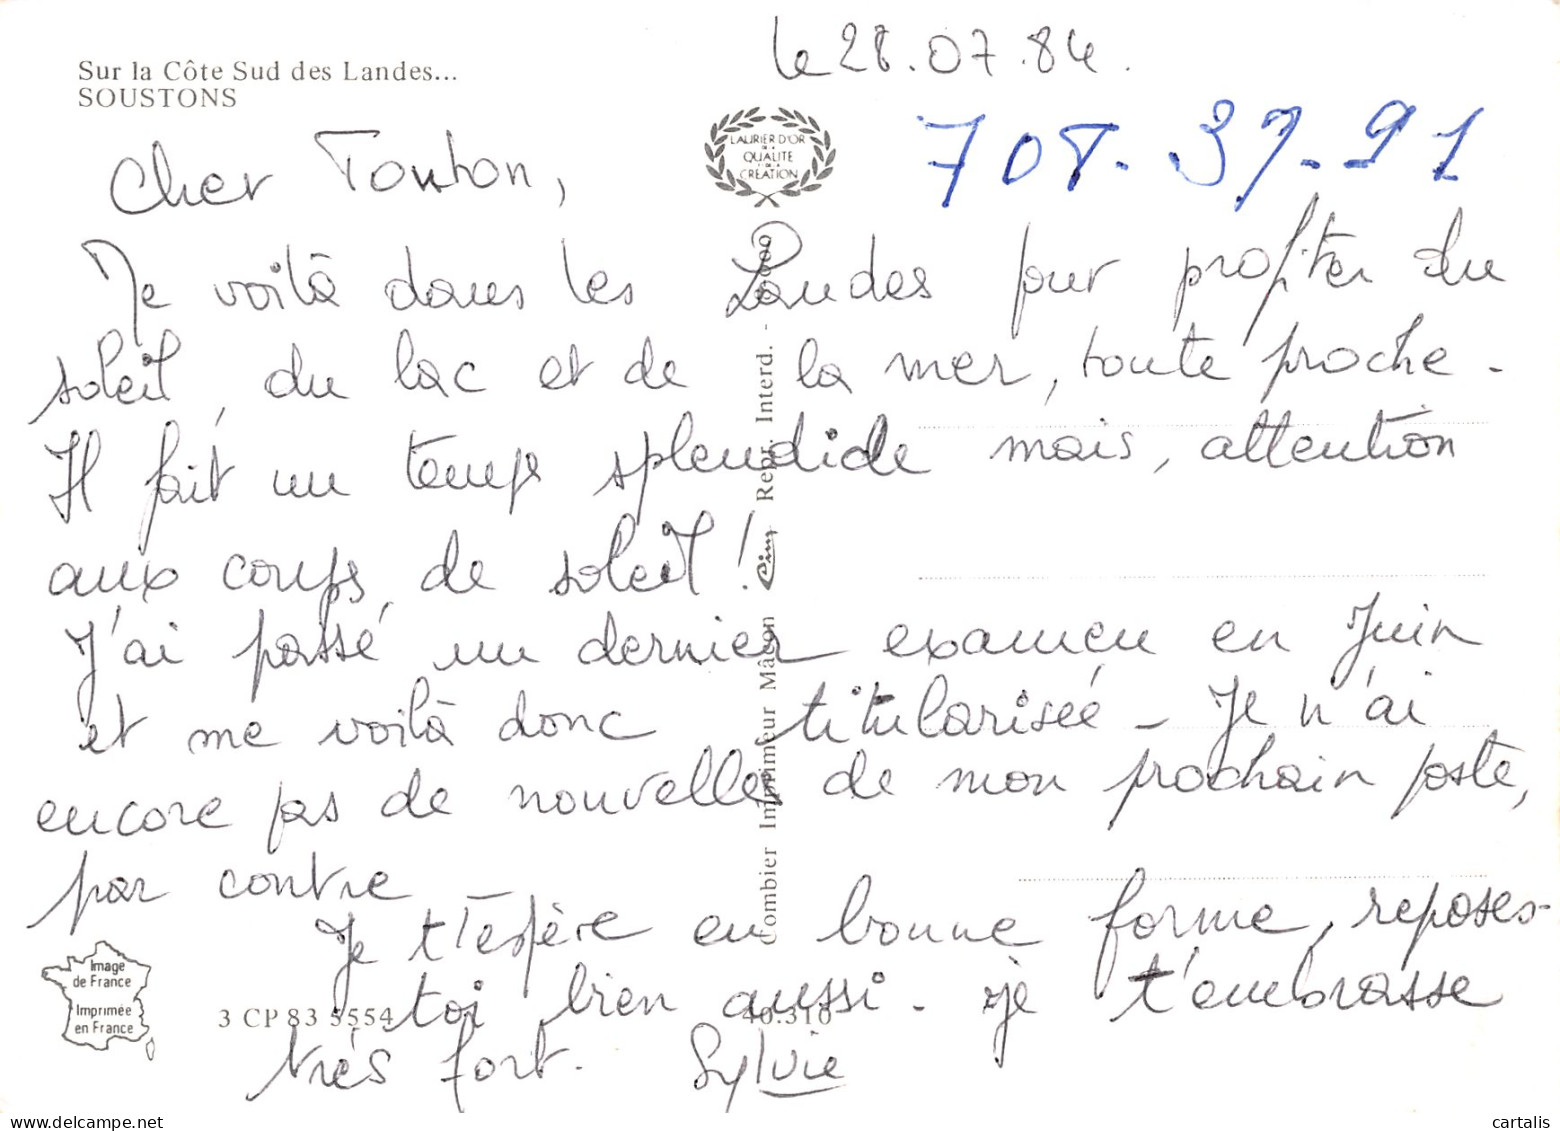 Sur la Côte Sud des Landes...
SOUSTONS
le 28.07.84.
LAURIER D'OR
DE LA
QUALITE
DE
CREATION
708.37.91
Cher Tonton,
Me voilà dans les Landes pour profiter du
soleil, du lac et de la mer, toute proche -
Il fait un temps splendide mais, attention
aux coups de soleil !
J'ai passé un dernier examen en Juin
et me voilà donc titularisée - Je n'ai
encore pas de nouvelles de mon prochain poste,
par contre
Je t'espère en bonne forme, reposes-
toi bien aussi - je t'embrasse
très fort. Sylvie
Combier Imprimeur Mâcon Cim Repr. Interd. -
Image
de France
Imprimée
en France
3 CP 83 5554
40.310
www.delcampe.net
cartalis